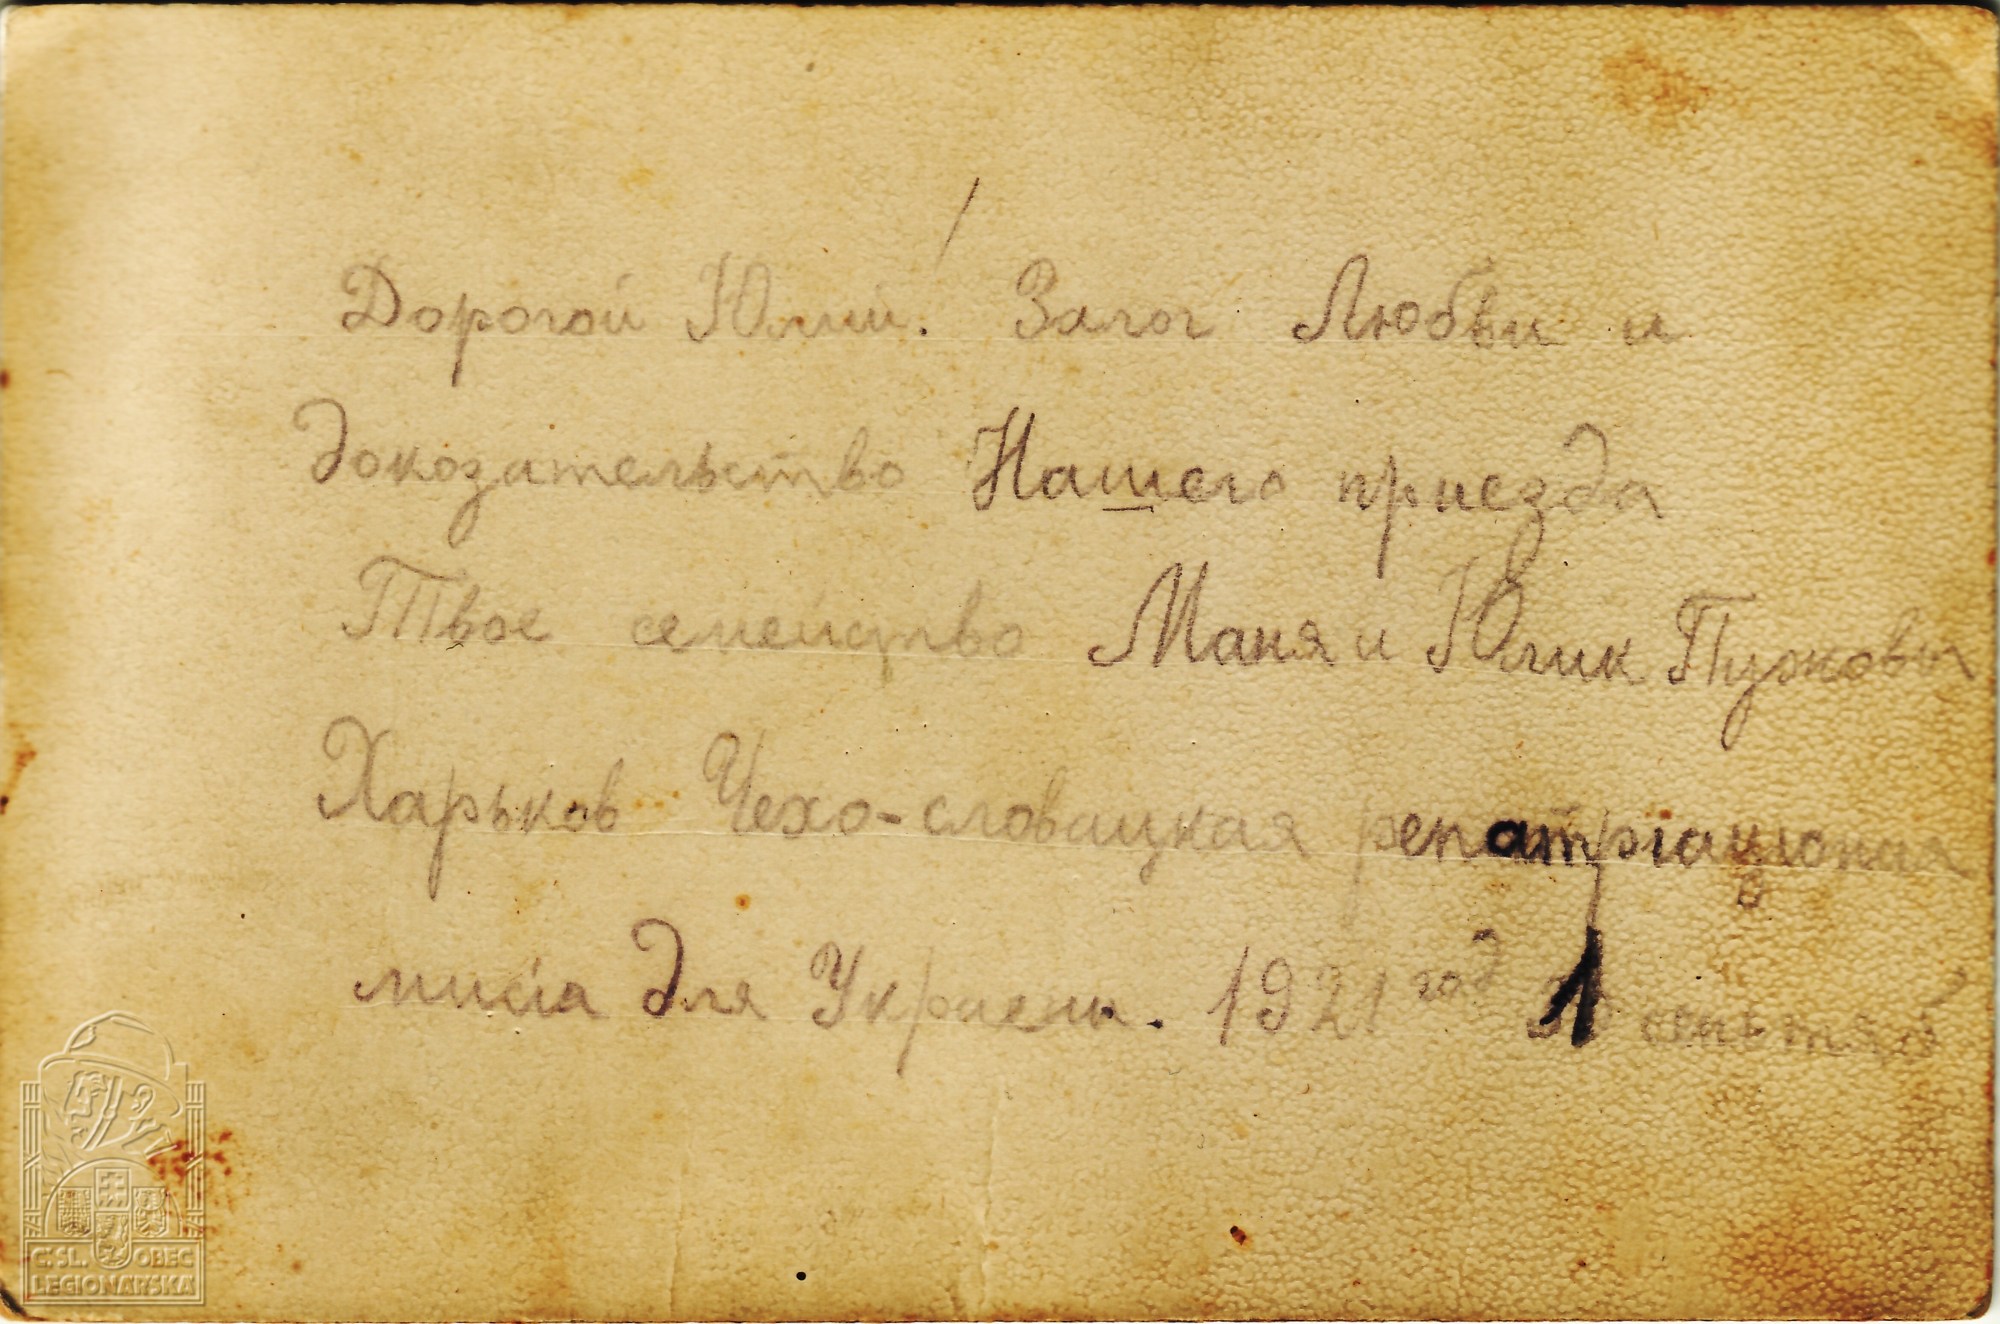 Дорогой Юлий! Залог Любви и
доказательство Нашего приезда
Твое семейство Маня и Юлик Пужковы
Харьков Чехо-словацкая репатриационая
мисiа для Украены. 1921 год 1
Č. SL. OBEC
LEGIONÁŘSKÁ